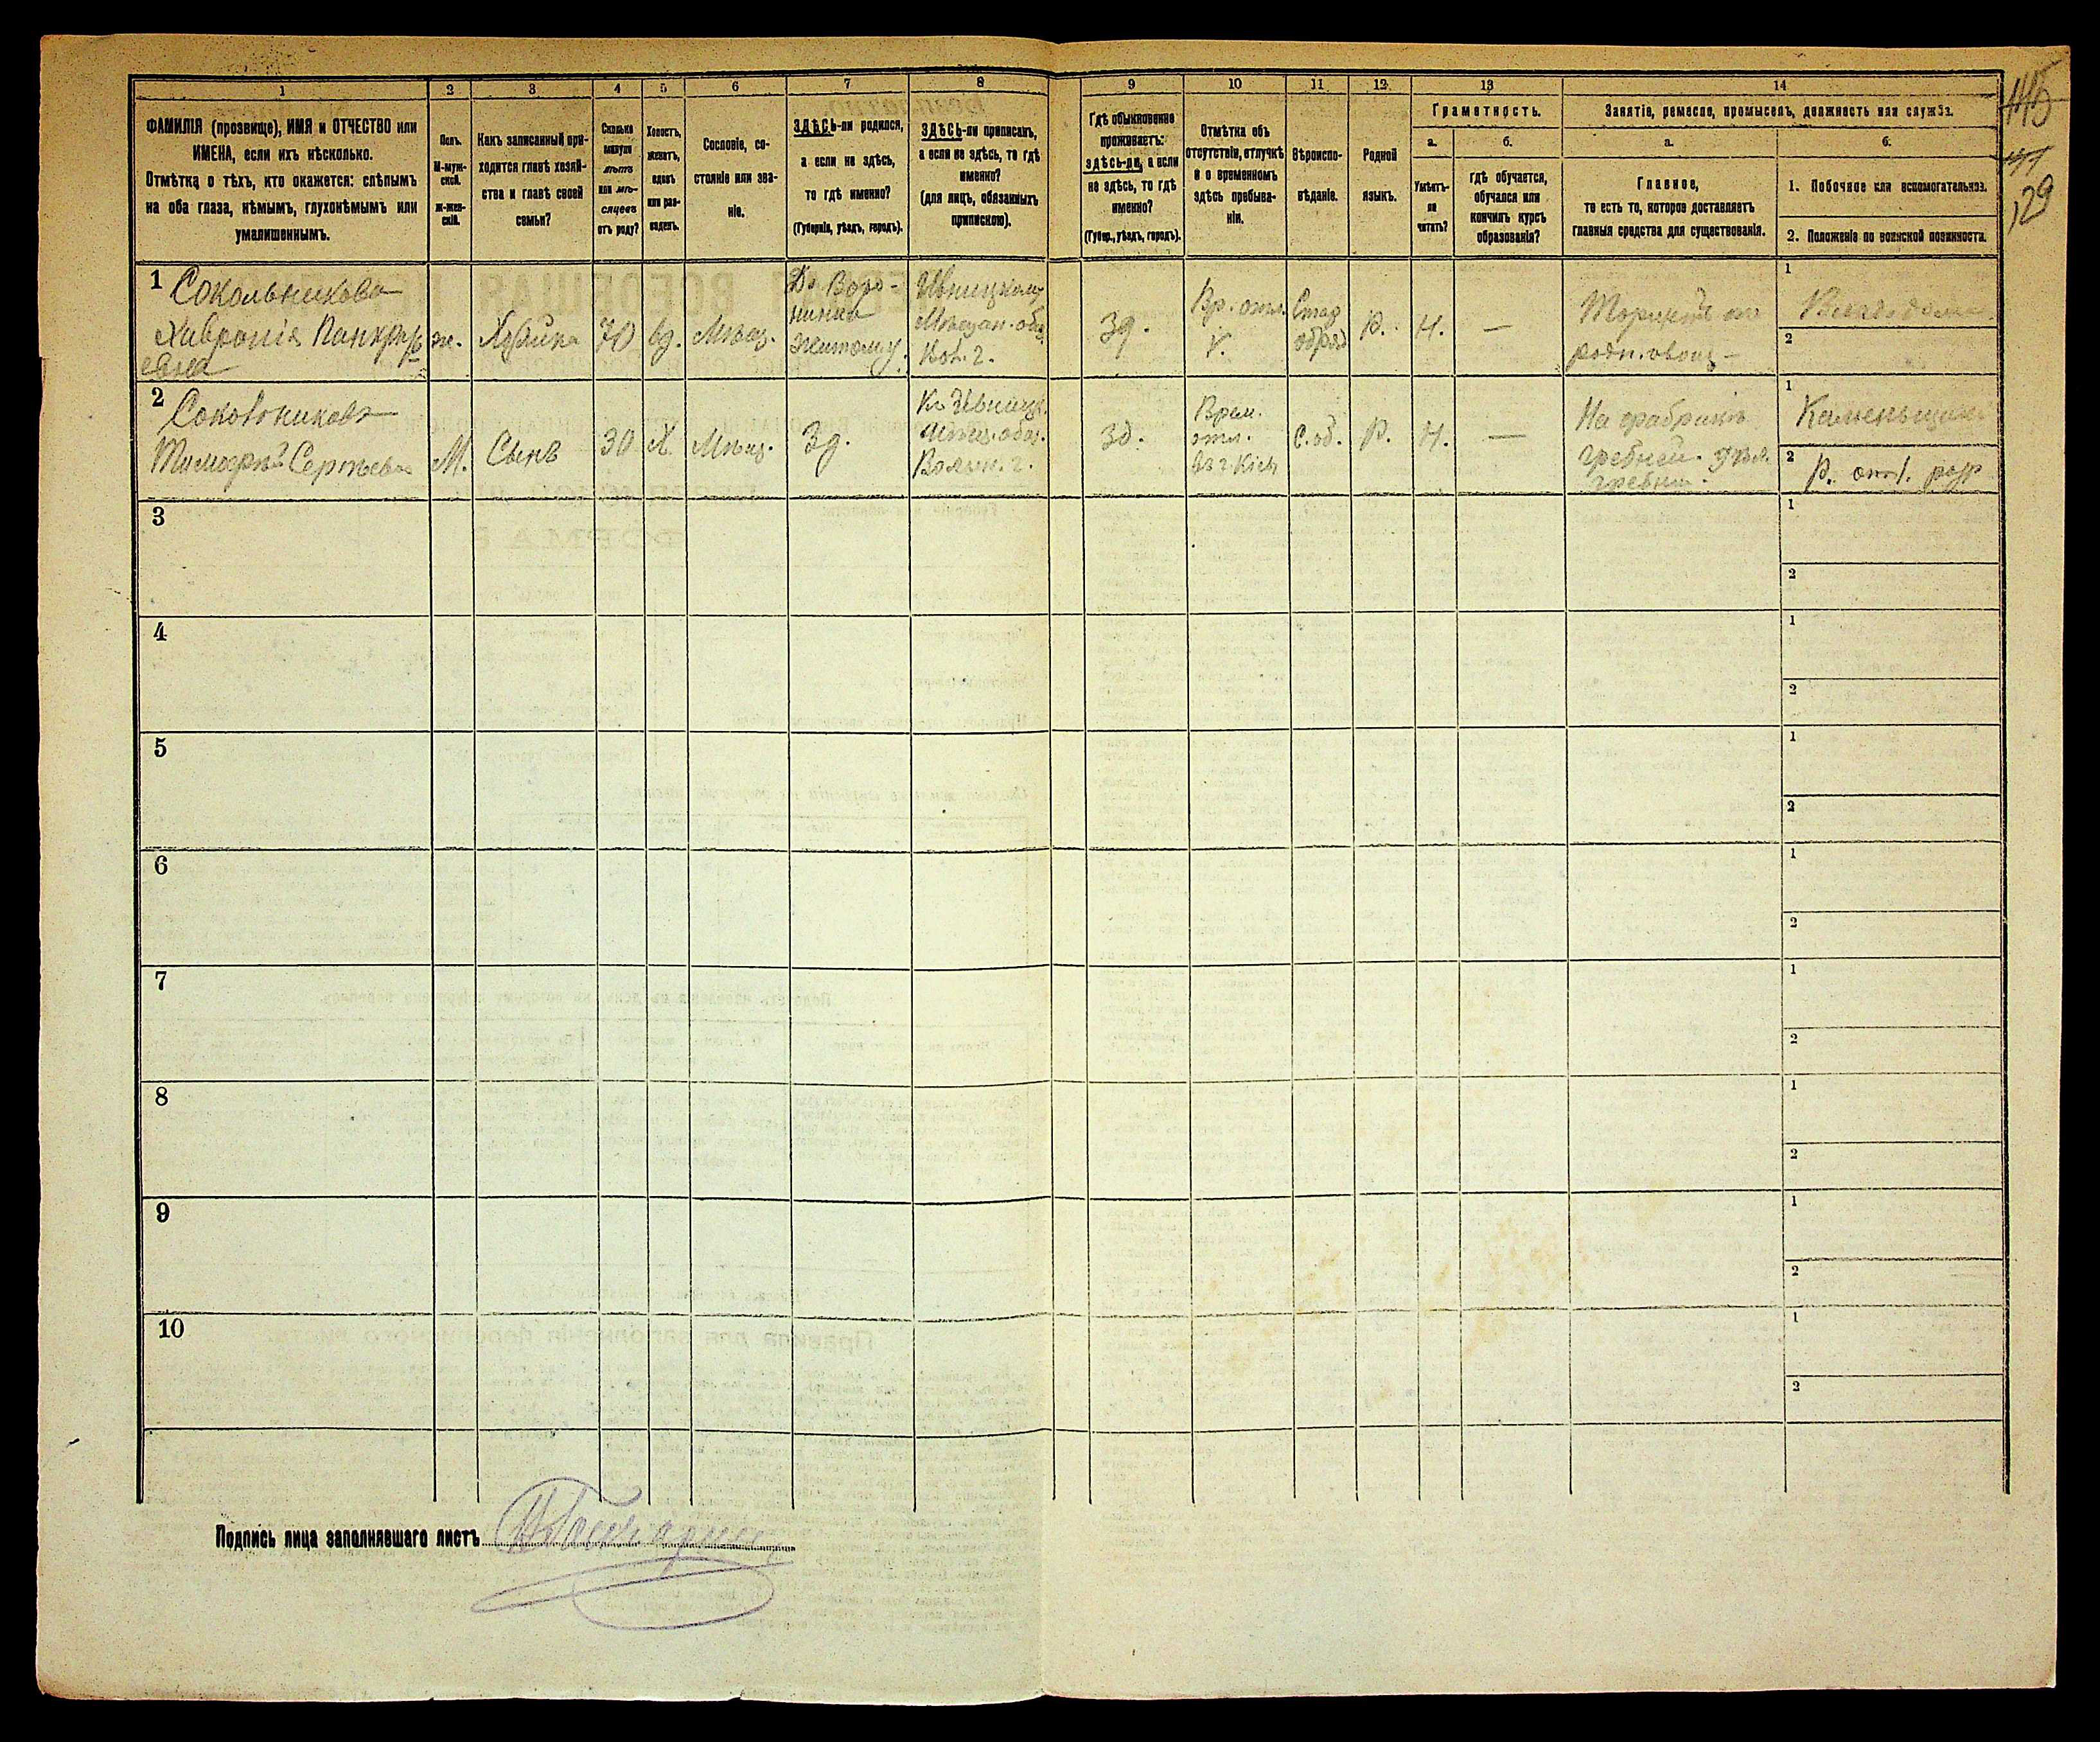 1
2
3
4
5
6
7
8
9
10
11
12
13
14
ФАМИЛІЯ (прозвище), ИМЯ и ОТЧЕСТВО или
ИМЕНА, если ихъ нѣсколько.
Отмѣтка о тѣхъ, кто окажется: слѣпымъ
на оба глаза, нѣмымъ, глухонѣмымъ или
умалишеннымъ.
Полъ.
М-муж-
ской.
Ж-жен-
скій.
Какъ записанный при-
ходится главѣ хозяй-
ства и главѣ своей
семьи?
Сколько
минуло
лѣтъ
или мѣ-
сяцевъ
отъ роду?
Холостъ,
женатъ,
вдовъ
или раз-
веденъ.
Сословіе, со-
стояніе или зва-
ніе.
ЗДѢСЬ-ли родился,
а если не здѣсь,
то гдѣ именно?
(Губернія, уѣздъ, городъ).
ЗДѢСЬ-ли приписанъ,
а если не здѣсь, то гдѣ
именно?
(для лицъ, обязанныхъ
припискою).
Гдѣ обыкновенно
проживаетъ:
здѣсь-ли, а если
не здѣсь, то гдѣ
именно?
(Губер., уѣздъ, городъ).
Отмѣтка объ
отсутствіи, отлучкѣ
и о временномъ
здѣсь пребыва-
ніи.
Вѣроиспо-
вѣданіе.
Родной
языкъ.
Грамотность.
а.
Умѣетъ-
ли
читать?
б.
гдѣ обучается,
обучался или
кончилъ курсъ
образованія?
Занятіе, ремесло, промыселъ, должность или служба.
а.
Главное,
то есть то, которое доставляетъ
главныя средства для существованія.
б.
1. Побочное или вспомогательное.
2. Положеніе по воинской повинности.
29
1 Сокольникова
Хаврония Панкрать
евна
ж.
Хозяйка
70
вд.
Мѣщ.
Житому.
Ивницкому
Мѣщан. общ.
Вол. г.
Зд.
Вр. отл.
Стар
обряд
Р.
Н.
—
1
2
2 Сокольниковъ
Тимофей Сергѣевъ
М.
Сынъ
30
Х
Мѣщ.
Зд.
Къ Ивницк.
Мѣщ. общ.
Волын. г.
Зд.
Врем.
отл.
въ г. Кіевѣ
С. об.
Р.
Н.
—
На фабрикѣ
гребней
гребни.
1 Каменьщикъ
2
3
1
2
4
1
2
5
1
2
6
1
2
7
1
2
8
1
2
9
1
2
10
1
2
Подпись лица заполнявшаго листъ